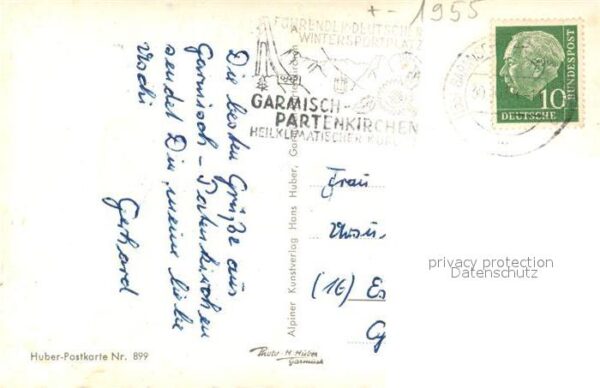 +- 1955
FÜHRENDER DEUTSCHER
WINTERSPORTPLATZ
GARMISCH-
PARTENKIRCHEN
HEILKLIMATISCHER KUR
10
DEUTSCHE
BUNDESPOST
Die besten Grüße aus
Garmisch-Partenkirchen
sendet Dir, meine liebe
Uschi
Gerhard
Alpiner Kunstverlag Hans Huber, Garmisch-Partenkirchen
Frau
(16)
privacy protection
Datenschutz
Huber-Postkarte Nr. 899
Photo H. Huber
Garmisch